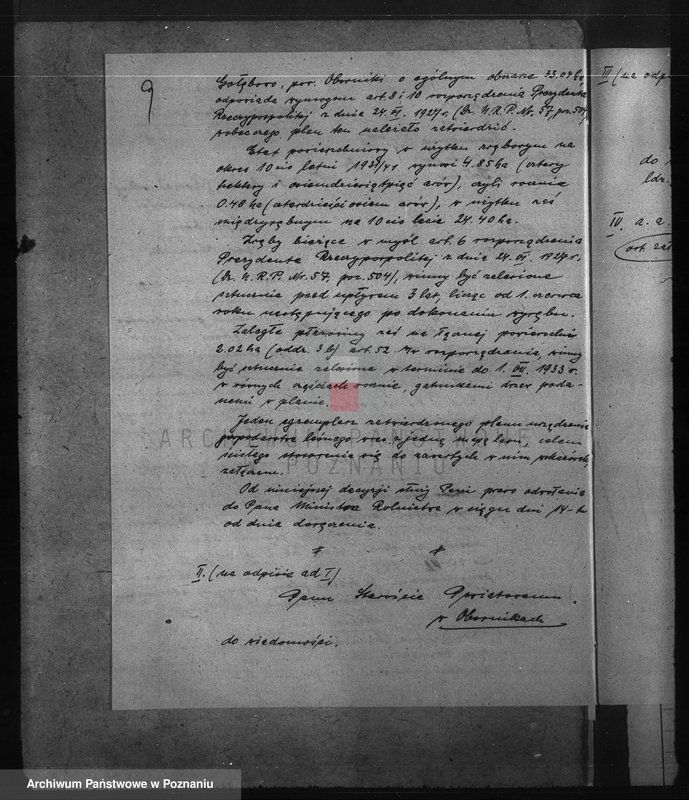 9
Gołębowo, pow. Oborniki o ogólnym obszarze 33.04 ha,
odpowiada wymogom art. 8 i 10 rozporządzenia Prezydenta
Rzeczypospolitej z dnia 24. VI. 1927 r. (Dz. U. R. P. Nr. 57, poz. 504)
wobec czego plan ten należało zatwierdzić.
Etat powierzchniowy w użytku rębnym na
okres 10 cio letni 1931/41 wynosi 4.85 ha (cztery
hektary i osiemdziesiątpięć arów), czyli rocznie
0.48 ha (czterdzieści osiem arów), w użytku zaś
międzyrębnym na 10 cio lecie 24.40 ha.
Zręby bieżące w myśl art. 6 rozporządzenia
Prezydenta Rzeczypospolitej z dnia 24. VI. 1927 r.
(Dz. U. R. P. Nr. 57, poz. 504), winny być zalesione
sztucznie przed upływem 3 lat, licząc od 1. czerwca
roku następującego po dokonaniu wyrębu.
Zaległe płazowiny zaś na łącznej powierzchni
2.02 ha (oddz. 3 b) art. 52 rozporządzenia, winny
być sztucznie zalesione w terminie do 1. VII. 1933 r.
w równych częściach rocznie, gatunkami drzew poda-
nemi w planie.
Jeden egzemplarz zatwierdzonego planu urządzenia
gospodarstwa leśnego wraz z jedną mapą lasu, celem
ścisłego stosowania się do zawartych w nim wskazówek,
załączam.
Od niniejszej decyzji służy Panu prawo odwołania
do Pana Ministra Rolnictwa w ciągu dni 14-tu
od dnia doręczenia.
II. (na odpisie ad I)
Panu Staroście Powiatowemu
w Obornikach
do wiadomości.
III (na odpi
do
ldz.
IV. a. a.
ARCHIWUM PAŃSTWOWE
W POZNANIU
Archiwum Państwowe w Poznaniu